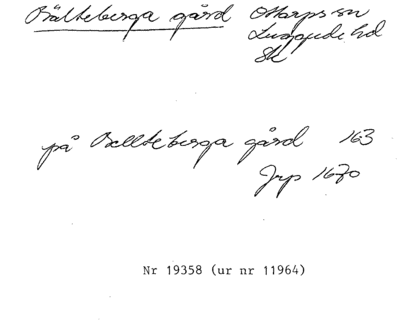 Bälteberga gård Ottarps sn
Luggude hd
Sk
på Bellteberga gård 163
Jrp 1670
Nr 19358 (ur nr 11964)